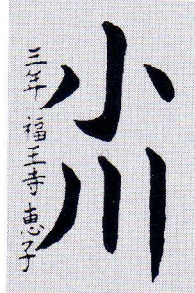 小川
三年 福王寺恵子